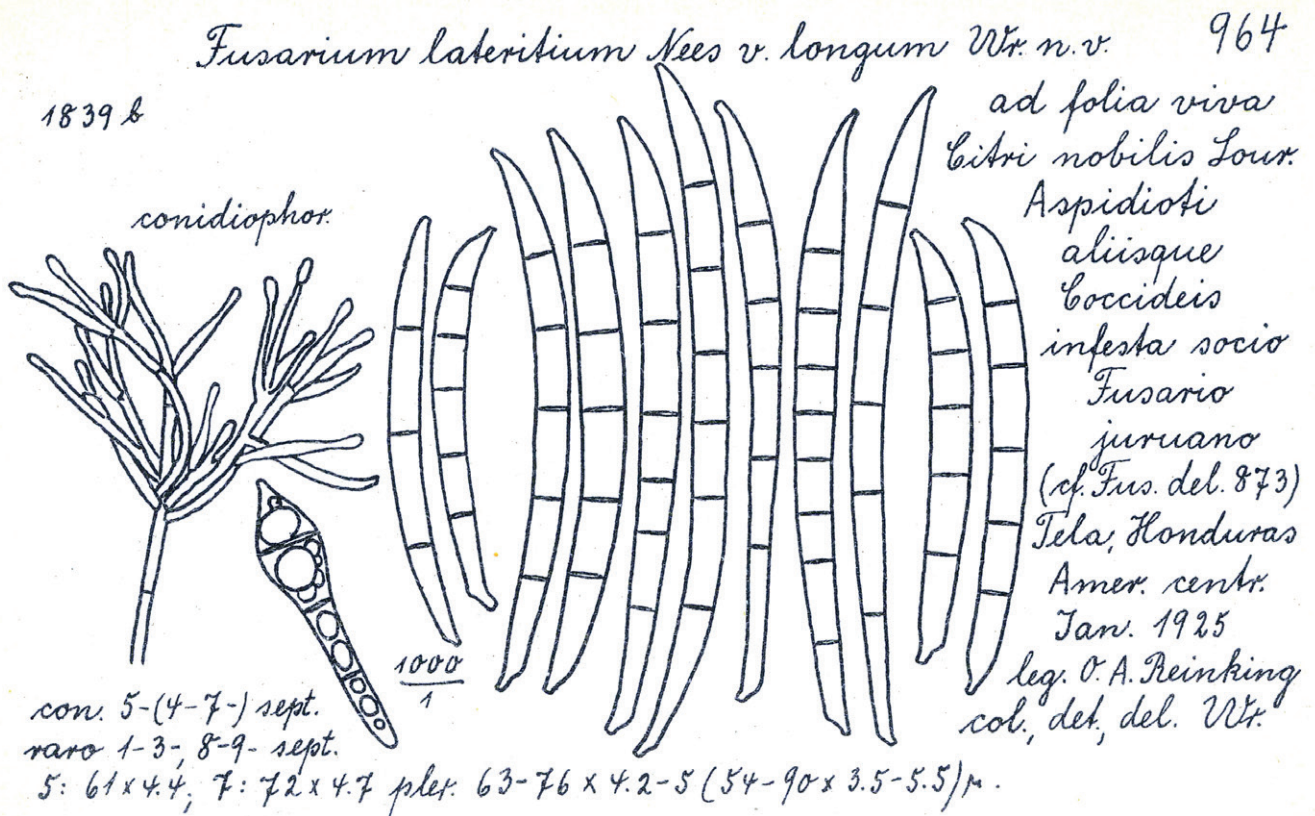 Fusarium lateritium Nees v. longum Wr. n. v.
964
1839 b
ad folia viva
Citri nobilis Lour.
Aspidioti
aliisque
Coccideis
infesta socio
Fusario
juruano
(cf. Fus. del. 873)
Tela, Honduras
Amer. centr.
Jan. 1925
leg. O. A. Reinking
col., det., del. Wr.
conidiophor.
1000
1
con. 5-(4-7-) sept.
raro 1-3-, 8-9- sept.
5: 61 x 4.4; 7: 72 x 4.7 pler. 63-76 x 4.2-5 (54-90 x 3.5-5.5) µ.